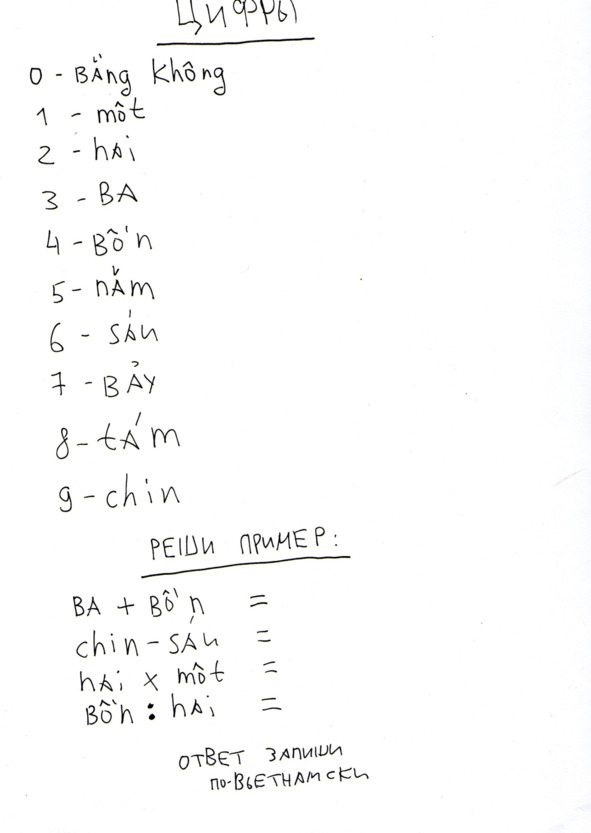 ЦИФРЫ
0 - BẰng Không
1 - môt
2 - hAi
3 - BA
4 - Bốn
5 - nĂm
6 - sÁu
7 - BẢY
8 - tÁm
9 - chin
РЕШИ ПРИМЕР:
BA + Bốn =
chin - sÁu =
hAi x môt =
Bốn : hAi =
ОТВЕТ ЗАПИШИ
ПО-ВЬЕТНАМСКИ